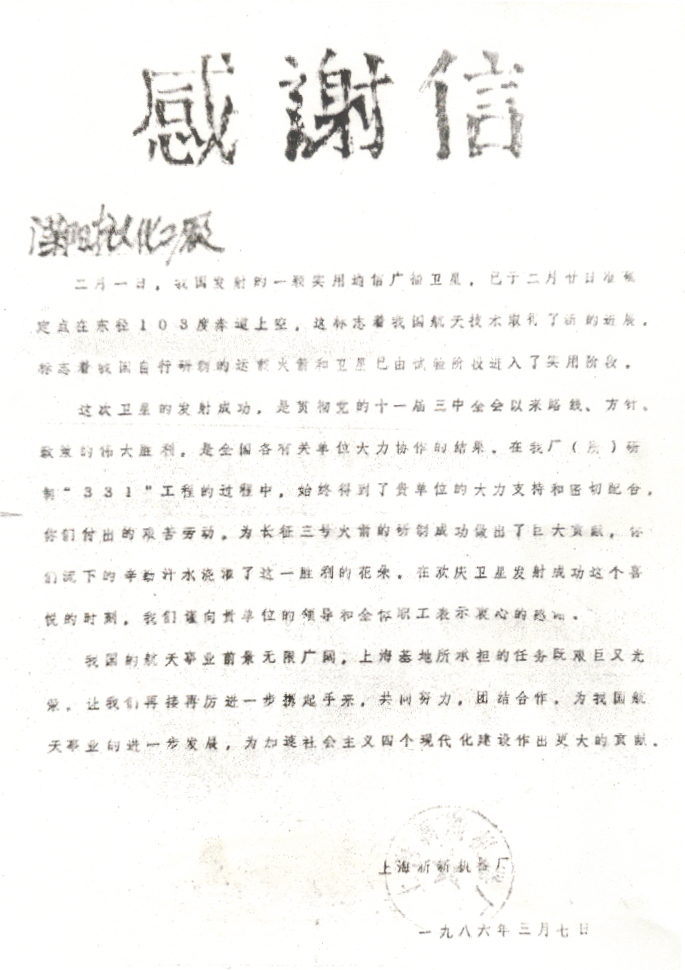 感謝信
二月一日，我国发射的一颗实用通信广播卫星，已于二月廿日准确
定点在东径103度赤道上空，这标志着我国航天技术取得了新的进展，
标志着我国自行研制的运载火箭和卫星已由试验阶段进入了实用阶段。
这次卫星的发射成功，是贯彻党的十一届三中全会以来路线、方针、
政策的伟大胜利，是全国各有关单位大力协作的结果。在我厂（所）研
制“331”工程的过程中，始终得到了贵单位的大力支持和密切配合，
你们付出的艰苦劳动，为长征三号火箭的研制成功做出了巨大贡献，你
们流下的辛勤汁水浇灌了这一胜利的花朵。在欢庆卫星发射成功这个喜
悦的时刻，我们谨向贵单位的领导和全体职工表示衷心的感谢。
我国的航天事业前景无限广阔，上海基地所承担的任务既艰巨又光
荣。让我们再接再厉进一步携起手来，共同努力，团结合作，为我国航
天事业的进一步发展，为加速社会主义四个现代化建设作出更大的贡献。
上海新新机器厂
一九八六年三月七日